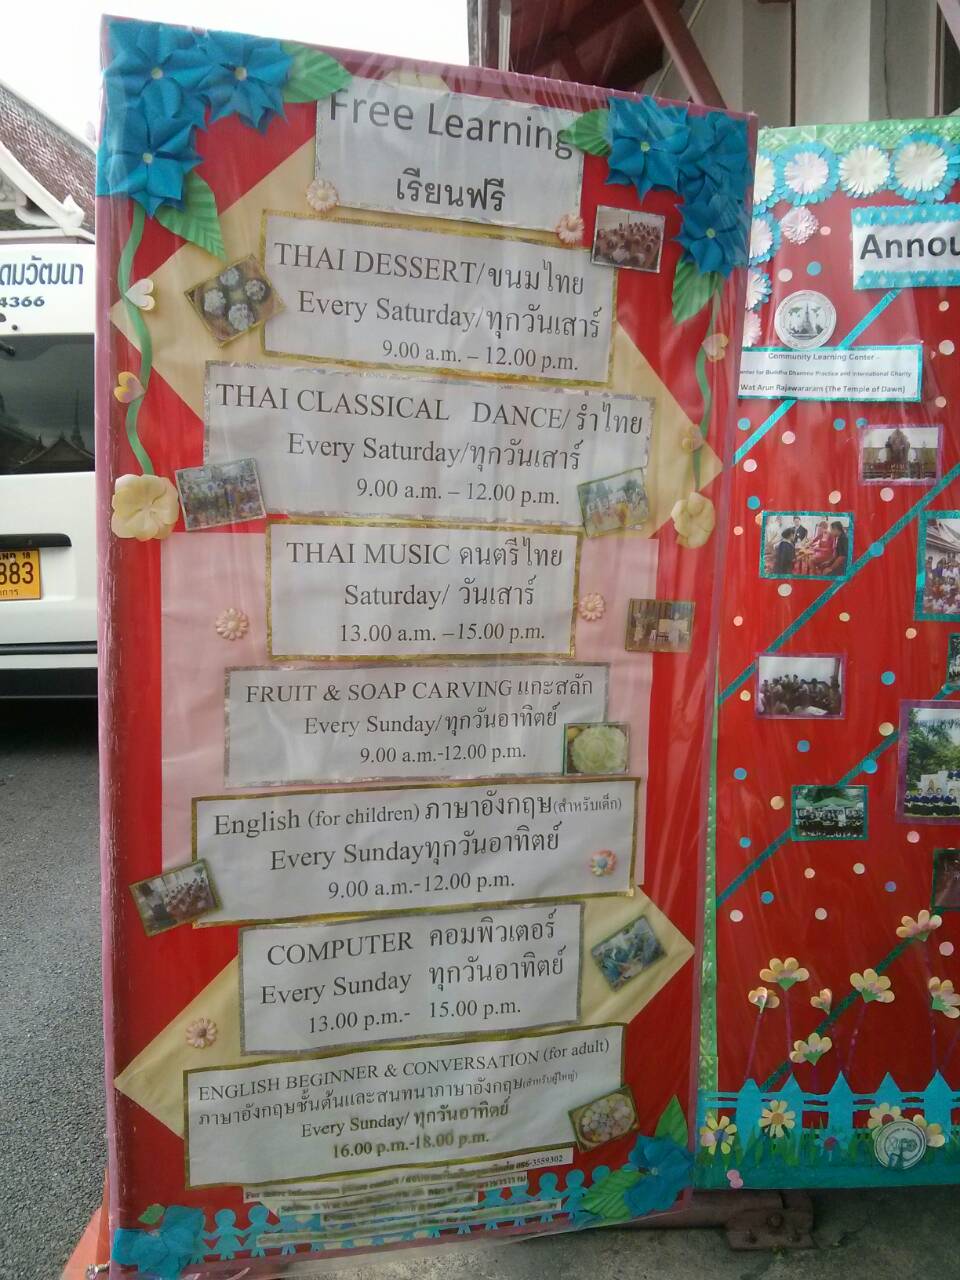 Free Learning
เรียนฟรี
THAI DESSERT/ขนมไทย
Every Saturday/ทุกวันเสาร์
9.00 a.m. – 12.00 p.m.
THAI CLASSICAL DANCE/รำไทย
Every Saturday/ทุกวันเสาร์
9.00 a.m. – 12.00 p.m.
THAI MUSIC ดนตรีไทย
Saturday/ วันเสาร์
13.00 a.m. –15.00 p.m.
FRUIT & SOAP CARVING แกะสลัก
Every Sunday/ทุกวันอาทิตย์
9.00 a.m.-12.00 p.m.
English (for children) ภาษาอังกฤษ(สำหรับเด็ก)
Every Sundayทุกวันอาทิตย์
9.00 a.m.-12.00 p.m.
COMPUTER คอมพิวเตอร์
Every Sunday ทุกวันอาทิตย์
13.00 p.m.- 15.00 p.m.
ENGLISH BEGINNER & CONVERSATION (for adult)
ภาษาอังกฤษชั้นต้นและสนทนาภาษาอังกฤษ(สำหรับผู้ใหญ่)
Every Sunday/ ทุกวันอาทิตย์
16.00 p.m.-18.00 p.m.
Annou
Community Learning Center -
for Buddha Dhamma Practice and International Charity
Wat Arun Rajawararam (The Temple of Dawn)
ดมวัฒนา
4366
18
883